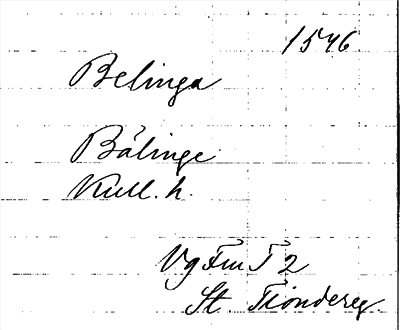 1546
Belinga
Bälinge
Kull. h.
Vg Fm T 2
St. Tiondereg.